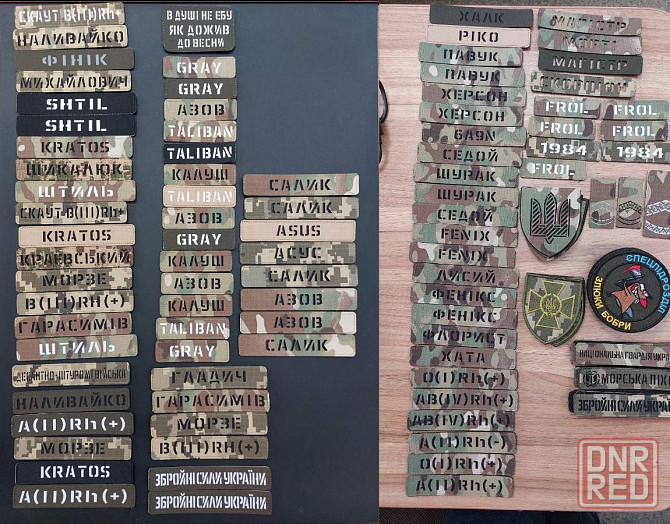 СКАУТ В(III)Rh+
НАЛИВАЙКО
ФІНІК
МИХАЙЛОВИЧ
SHTIL
SHTIL
KRATOS
ШИКАЛЮК
ШТИЛЬ
СКАУТ-В(III)Rh+
KRATOS
КРАЕВСЬКИЙ
МОРЗЕ
В(III)Rh(+)
ГАРАСИМІВ
ШТИЛЬ
ДЕСАНТНО-ШТУРМОВІ ВІЙСЬКА
НАЛИВАЙКО
A(II)Rh(+)
МОРЗЕ
KRATOS
A(II)Rh(+)
В ДУШІ НЕ ЕБУ
ЯК ДОЖИВ
ДО ВЕСНИ
GRAY
GRAY
АЗОВ
TALIBAN
TALIBAN
КАЛУШ
TALIBAN
АЗОВ
GRAY
КАЛУШ
АЗОВ
КАЛУШ
TALIBAN
GRAY
ГЛАДИЧ
ГАРАСИМІВ
МОРЗЕ
В(III)RH(+)
ЗБРОЙНІ СИЛИ УКРАЇНИ
ЗБРОЙНІ СИЛИ УКРАЇНИ
САЛИК
САЛИК
ASUS
АСУС
САЛИК
АЗОВ
АЗОВ
САЛИК
ХАЛК
РІКО
ПАВУК
ПАВУК
ХЕРСОН
ХЕРСОН
БАУN
СЕДОЙ
ШУРАК
ШУРАК
СЕДОЙ
FENIX
FENIX
ЛИСИЙ
ФЕНІКС
ФЕНІКС
ФЛОРИСТ
ХАТА
O(I)Rh(+)
AB(IV)Rh(+)
AB(IV)Rh(+)
A(II)Rh(-)
O(I)Rh(+)
A(II)Rh(+)
МАГІСТР
МАГІСТР
СКОРПІОН
FROL FROL
FROL FROL
1984 1984
FROL
СПЕЦПІДРОЗДІЛ
ЗЛЮКИ БОБРИ
НАЦІОНАЛЬНА ГВАРДІЯ УКРА
МОРСЬКА ПІХ
ЗБРОЙНІ СИЛИ УКРАЇНИ
DNR
RED